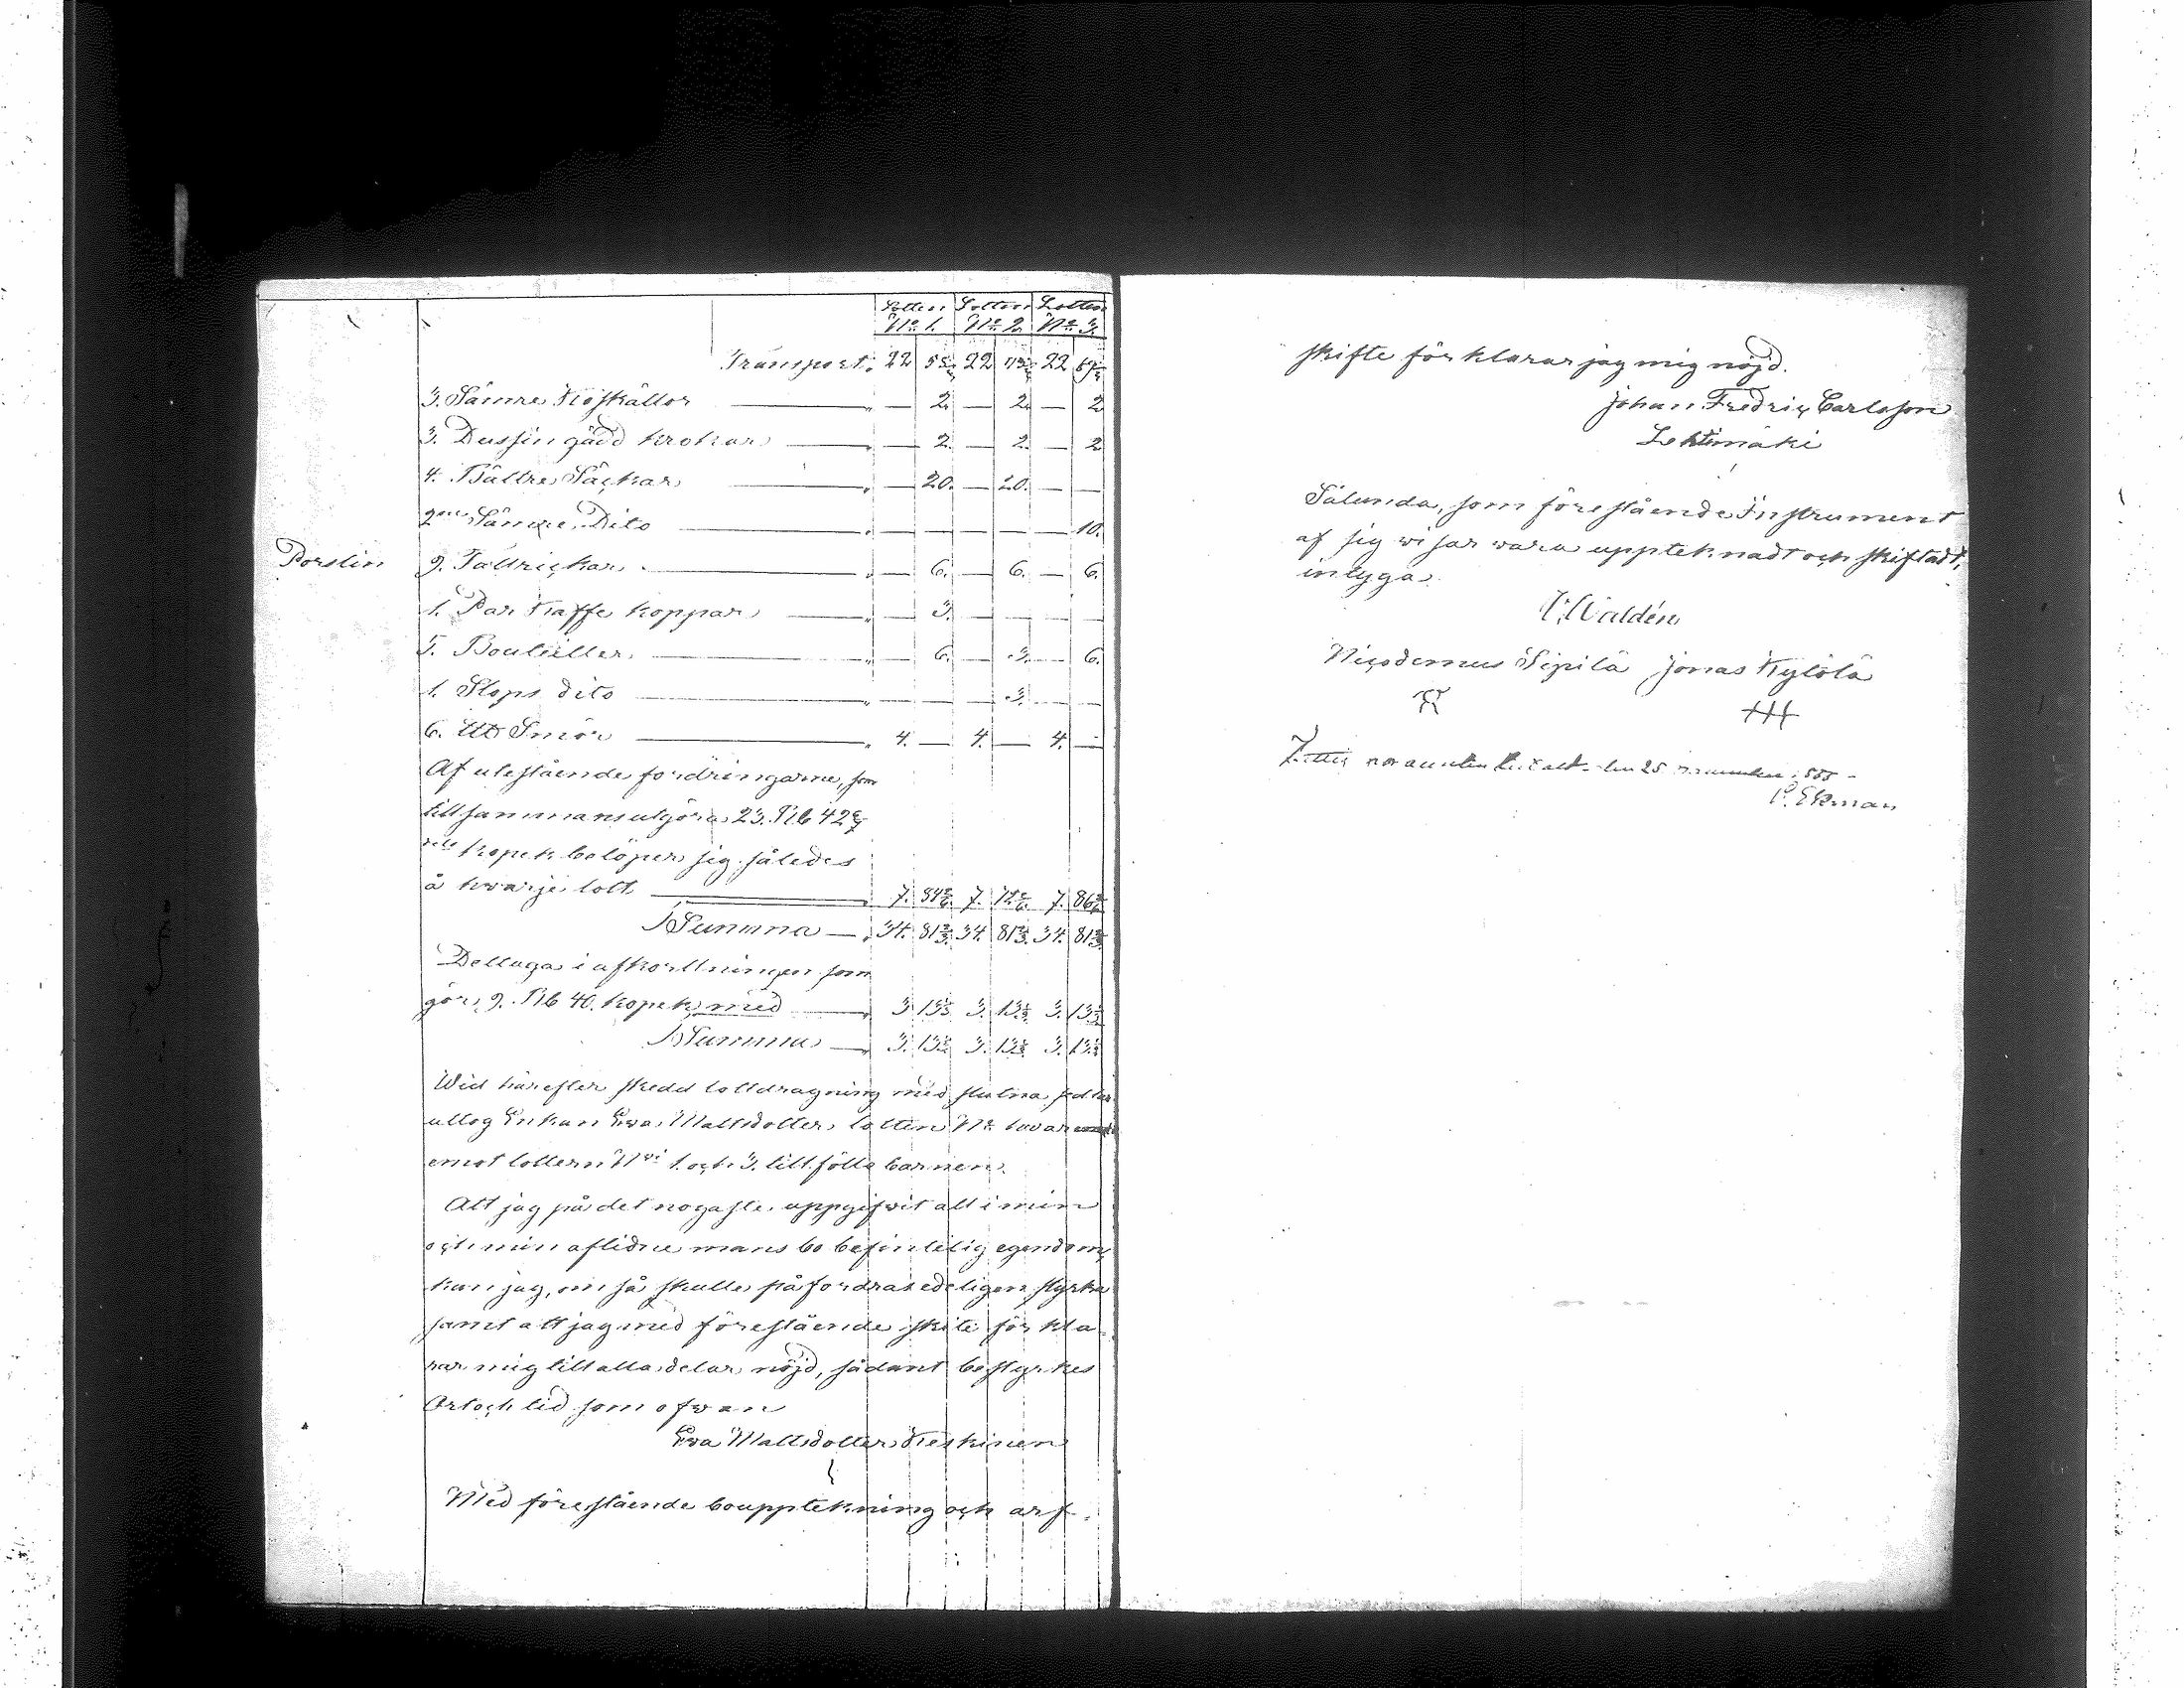 Lotten Lotten Lotten
No 1. No 2. No 3.
Transport: 22 22 22
3. Sämre Koskällor — 2. — 2. — 2
3. Dussin gädd krokar — 2. — 2. — 2
4. Bättre Säckar — 20. — 20. — —
2ne Sämre Dito — — — — — 10.
Porslin 9. Tallrickar — 6. — 6. — 6.
1. Par Kaffe koppar — 3. — — — —
5. Bouteiller — 6. — 3. — 6.
1. Stops dito — — — 3. — —
6. LU Smör 4. — 4. — 4. —
Af utestående fordringarne, som
tillsammans utgöra 23. Rub 42 6/7
kopek belöper sig således
å hwarje lott 7. 84 7. 72 7. 86
Summa — 34. 81 2/3 34. 81 2/3 34. 81 2/3
Deltaga i afkortningen som
gör 9. Rub 40. kopek med 3 13 1/3 3. 13 1/3 3. 13 1/3
Summa — 3. 13 1/3 3. 13 1/3 3. 13 1/3
Wid härefter skedd lottdragning med slutna sedlar
uttog Enkan Eva Mattsdotter lotten No
emot lotterne Nri 1. och 3. tillföllo barnen.
Att jag på det nogaste uppgifvit allt i min
och min aflidne mans bo befintelig egendom,
kan jag, om så skulle påfordras edeligen styrka
samt att jag med förestående skifte förkla
rar mig till alla delar nöjd, sådant bestyrkes
Ort och tid som ofwan
Eva Mattsdotter Keskinen
Med förestående bouppteckning och arf
skifte förklarar jag mig nöjd.
Johan Fredric Carlsson
Lehtimäki
Sålunda, som förestående Instrument
af sig wisar wara upptecknadt och skiftadt,
intyga.
Waldén
Nicodemus Sipilä Jonas Kylölä
den 25 november 1855
P. Ekman